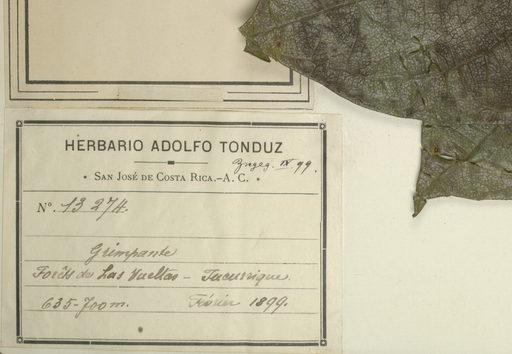 HERBARIO ADOLFO TONDUZ
Zugeg. IX. 99.
• SAN JOSÉ DE COSTA RICA.-A. C. •
Nº. 13 274.
Grimpante
Forêts de Las Vueltas - Tucurrique
635-700 m. Février 1899.